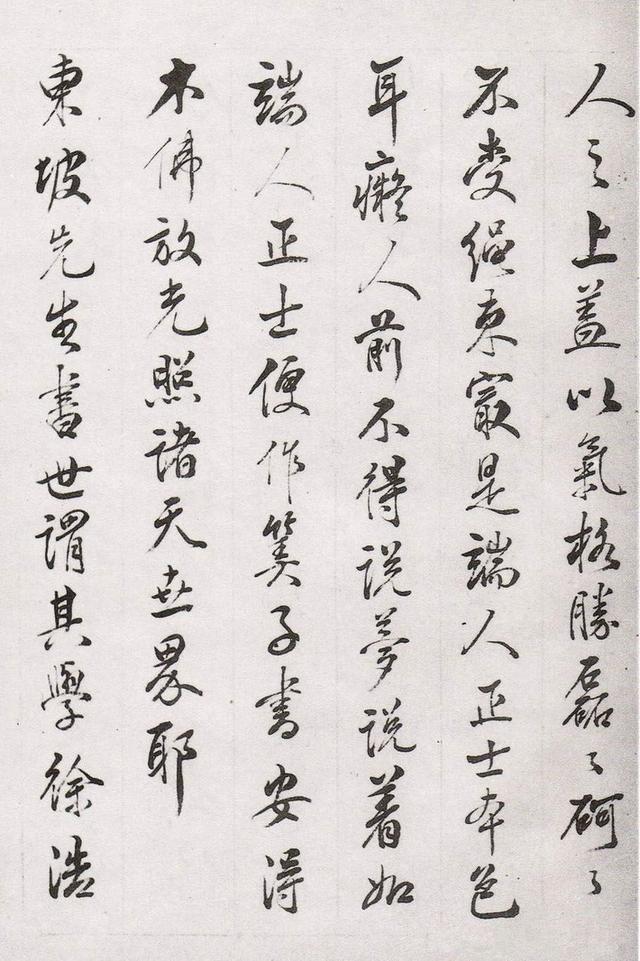 人之上蓋以氣格勝磊々砢々
不受繩束寂是端人正士本色
耳癡人前不得说夢说着如
端人正士便作筭子書安得
木佛放光照諸天世界耶
東坡先生書世謂其學徐浩